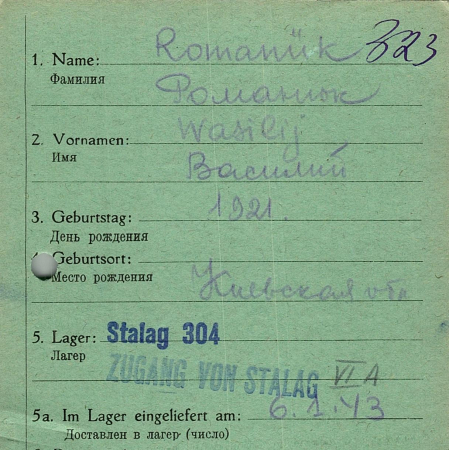 1. Name: Romanük 323
Фамилия Романюк
2. Vornamen: Wasilij
Имя Василий
3. Geburtstag: 1921.
День рождения
Geburtsort:
Место рождения Киевская обл
5. Lager: Stalag 304
Лагер ZUGANG VON STALAG VI A
5a. Im Lager eingeliefert am: 6.1.43
Доставлен в лагер (число)